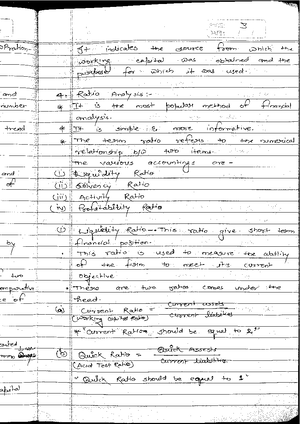 It indicates the source from which the
working capital was obtained and the
purposes for which it was used.
4. Ratio Analysis:-
* It is the most popular method of financial
analysis.
* It is simple & more informative.
* The term ratio refers to the numerical
relationship b/w two items.
The various accountings are -
(i) Liquidity Ratio
(ii) Solvency Ratio
(iii) Activity Ratio
(iv) Profitability Ratio
(i) Liquidity Ratio -. This ratio give short term
financial position.
. This ratio is used to measure the ability
of the firm to meet its current
objective
. There are two ratios comes under the
head.
(a) Current Ratio = Current assets
(Working Capital Ratio) Current liabilities
* "Current Ratio should be equal to 2"
(b) Quick Ratio = Quick Assets
(Acid Test Ratio) Current liabilities
"Quick Ratio should be equal to 1"
and
number
trend
and
of
by
two
comparative
of
capital